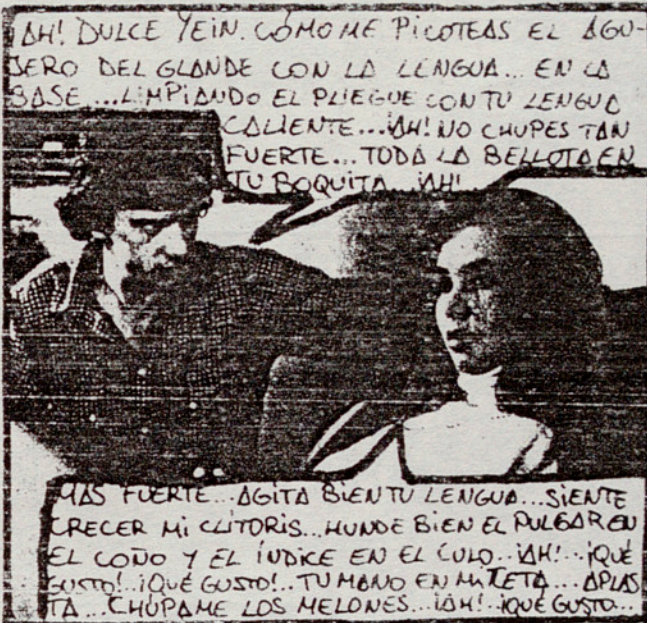 ¡AH! DULCE YEIN. CÓMO ME PICOTEAS EL AGU-
JERO DEL GLANDE CON LA LENGUA... EN LA
BASE....LIMPIANDO EL PLIEGUE CON TU LENGUA
CALIENTE...¡AH! NO CHUPES TAN
FUERTE... TODA LA BELLOTA EN
TU BOQUITA...¡AH!...
MAS FUERTE...AGITA BIEN TU LENGUA...SIENTE
CRECER MI CLITORIS...HUNDE BIEN EL PULGAR EN
EL COÑO Y EL ÍNDICE EN EL CULO...¡AH!...¡QUÉ
GUSTO!..¡QUÉ GUSTO!.. TU MANO EN MI TETA....APLAS
TA...CHÚPAME LOS MELONES...¡AH!..¡QUÉ GUSTO...